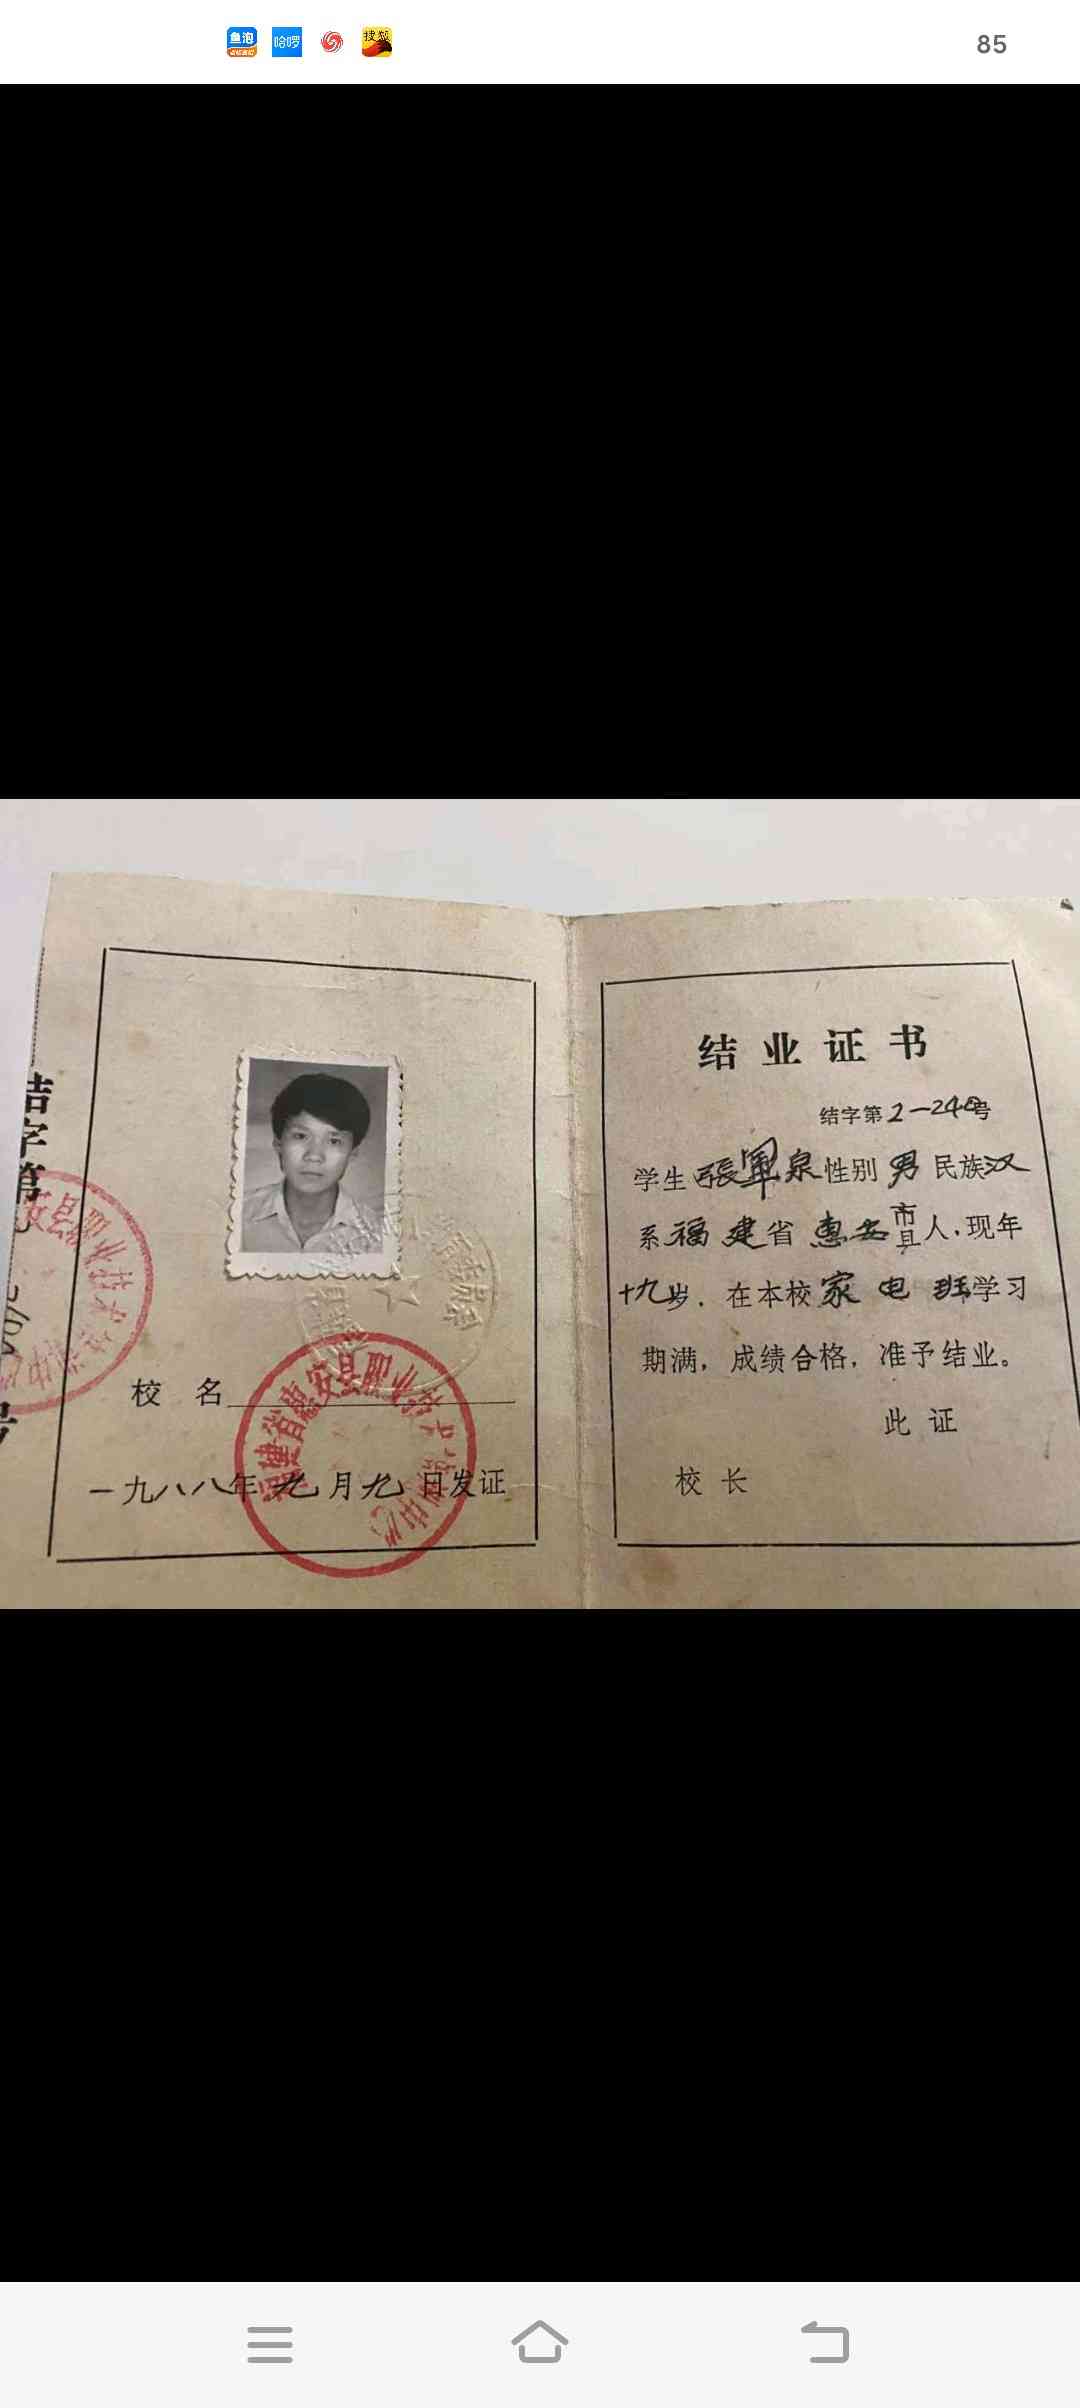 鱼泡
哈啰
搜狐
85
结字第
号
安县职业技术
校 名
福建省惠安县职业技术培训中心
一九八八年九月九日发证
结业证书
结字第2-240号
学生 張軍泉 性别 男 民族 汉
系 福建 省 惠安 市县 人,现年
十九岁. 在本校 家电班 学习
期满,成绩合格,准予结业。
此 证
校 长